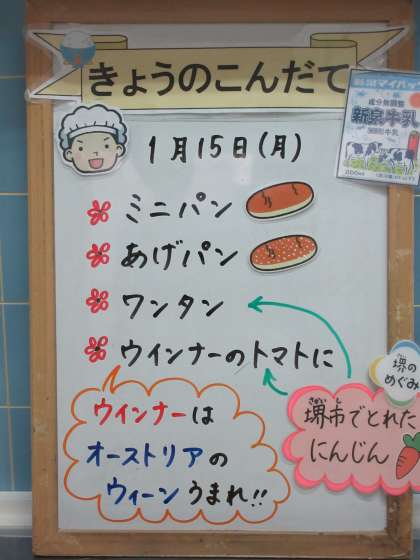 きょうのこんだて
1月15日(月)
ミニパン
あげパン
ワンタン
ウインナーのトマトに
ウインナーは
オーストリアの
ウィーンうまれ!!
堺の
めぐみ
堺市でとれた
にんじん
成分無調整
新泉牛乳
200ml